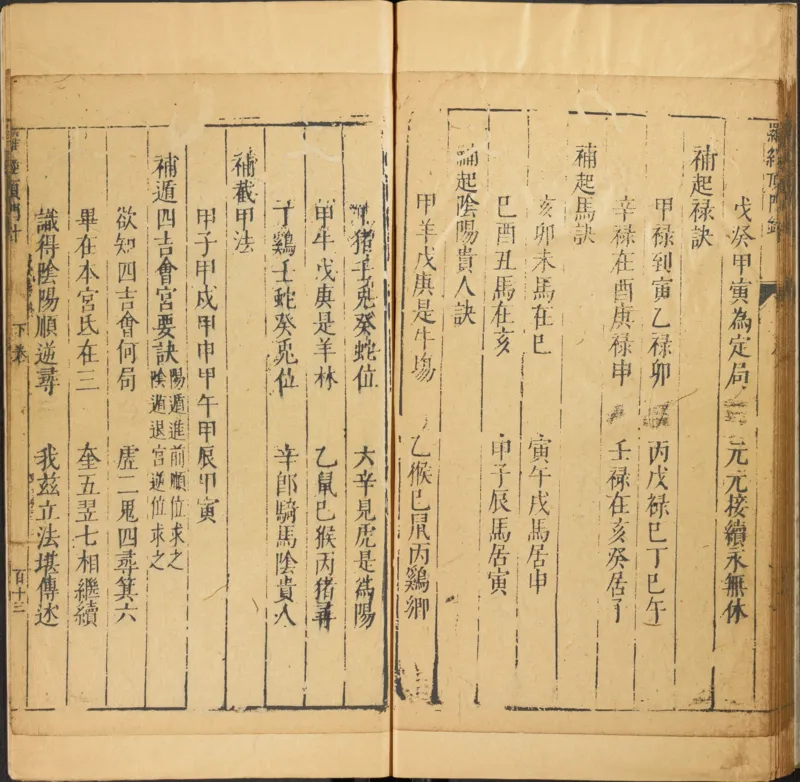 羅經頂門針
戊癸甲寅為定局 三元元接續永無休
補起祿訣
甲祿到寅乙祿卯 丙戊祿巳丁巳午
辛祿在酉庚祿申 壬祿在亥癸居子
補起馬訣
亥卯未馬在巳 寅午戌馬居申
巳酉丑馬在亥 申子辰馬居寅
補起陰陽貴人訣
甲羊戊庚是牛場 乙猴巳鼠丙鷄鄉
猪壬兎癸蛇位 六辛見虎是爲陽
甲牛戊庚是羊林 乙鼠巳猴丙猪尋
丁鷄壬蛇癸兎位 辛郎騎馬陰貴人
補截甲法
甲子甲戌甲申甲午甲辰甲寅
補遁四吉會宮要訣 陽遁進前順位求之
陰遁退宮逆位求之
欲知四吉會何局 虛二鬼四尋箕六
畢在本宮氐在三 奎五翌七相繼續
識得陰陽順逆尋 我茲立法堪傳述
羅經頂門針
下卷
百十三